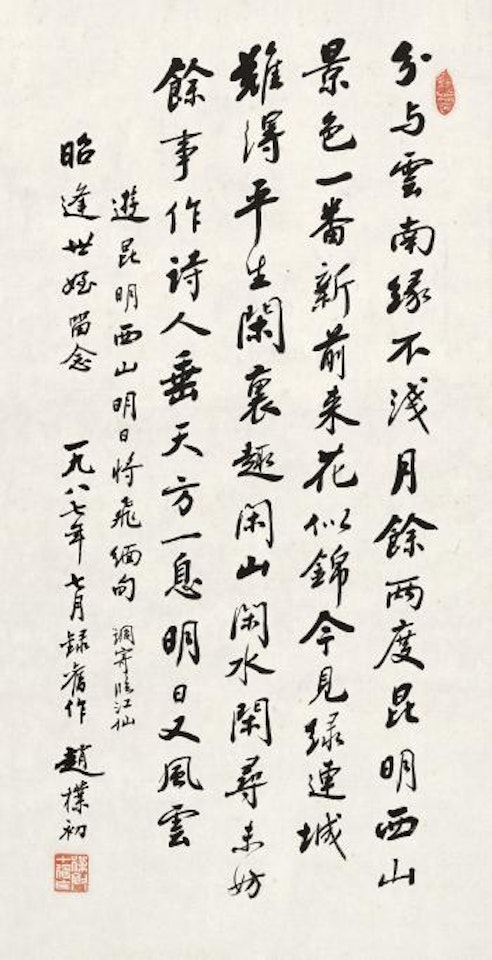 分与雲南緣不淺月餘兩度昆明西山
景色一番新前来花似錦今見綠連城
難得平生閑裏趣閑山閑水閑尋未妨
餘事作詩人垂天方一息明日又風雲
遊昆明西山明日將飛緬甸 調寄臨江仙
昭逢世姪留念 一九八七年七月録舊作 趙樸初